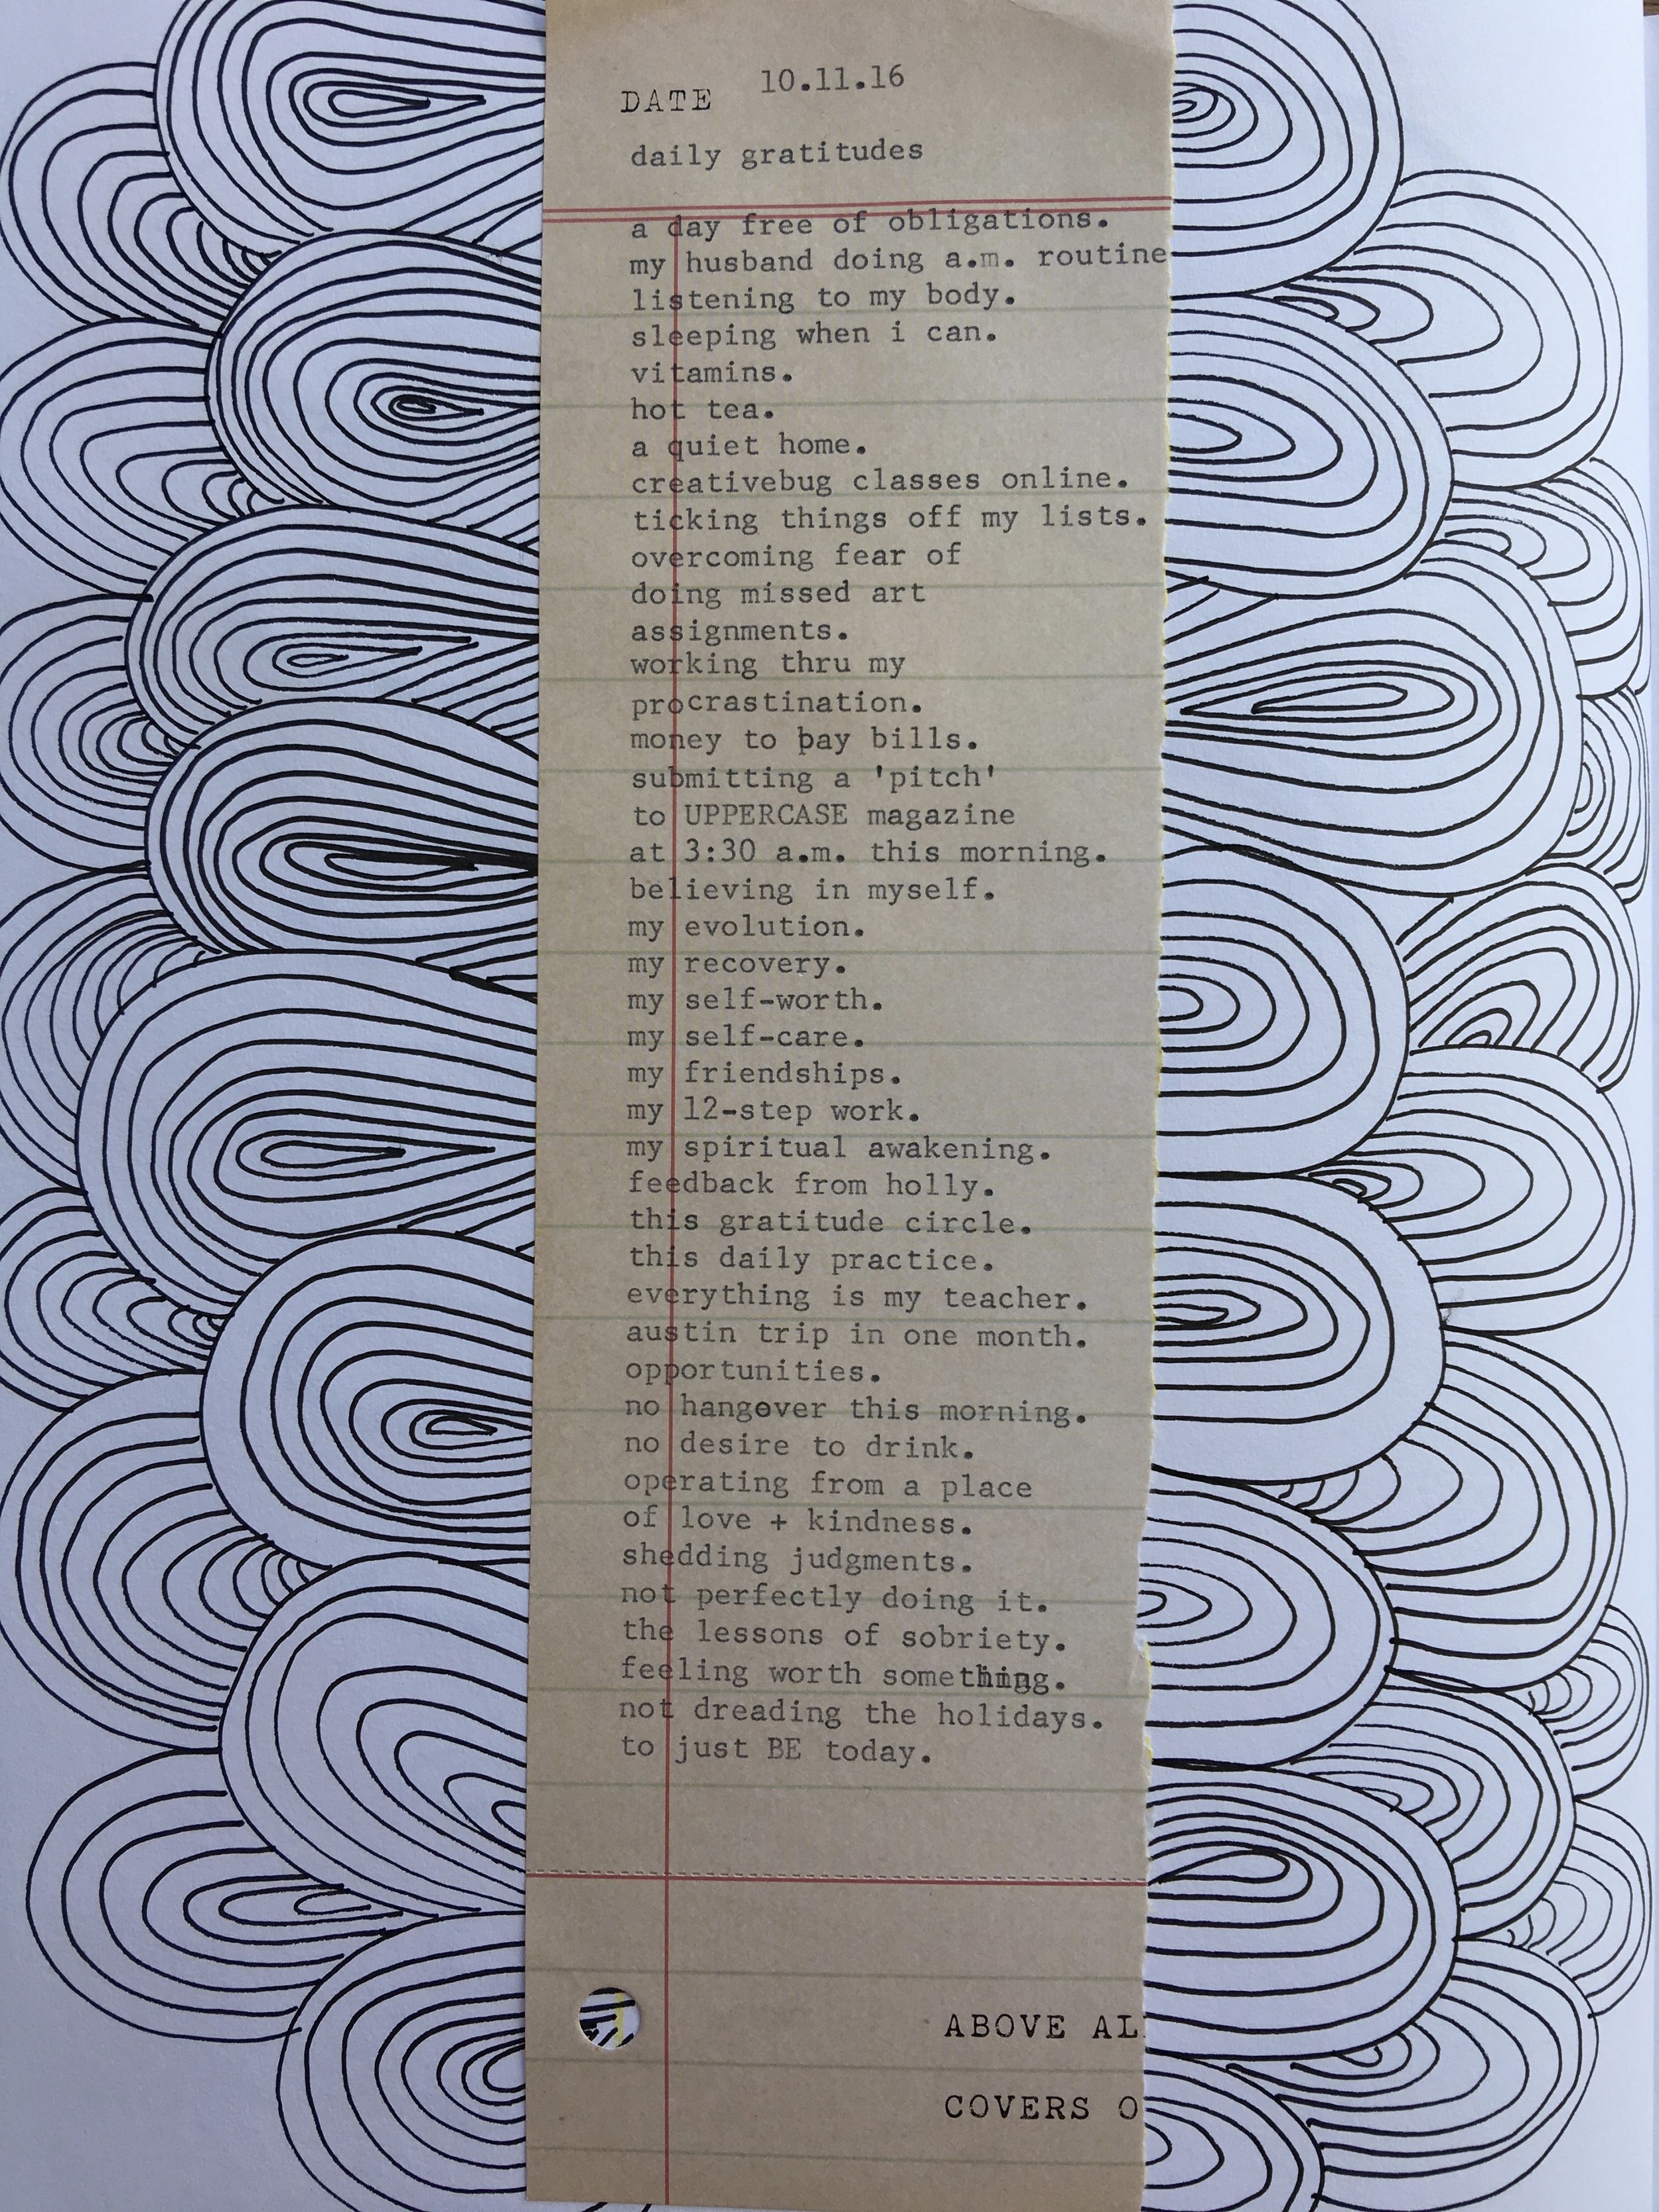 DATE 10.11.16
daily gratitudes
a day free of obligations.
my husband doing a.m. routine
listening to my body.
sleeping when i can.
vitamins.
hot tea.
a quiet home.
creativebug classes online.
ticking things off my lists.
overcoming fear of
doing missed art
assignments.
working thru my
procrastination.
money to pay bills.
submitting a 'pitch'
to UPPERCASE magazine
at 3:30 a.m. this morning.
believing in myself.
my evolution.
my recovery.
my self-worth.
my self-care.
my friendships.
my 12-step work.
my spiritual awakening.
feedback from holly.
this gratitude circle.
this daily practice.
everything is my teacher.
austin trip in one month.
opportunities.
no hangover this morning.
no desire to drink.
operating from a place
of love + kindness.
shedding judgments.
not perfectly doing it.
the lessons of sobriety.
feeling worth something.
not dreading the holidays.
to just BE today.
ABOVE AL
COVERS O